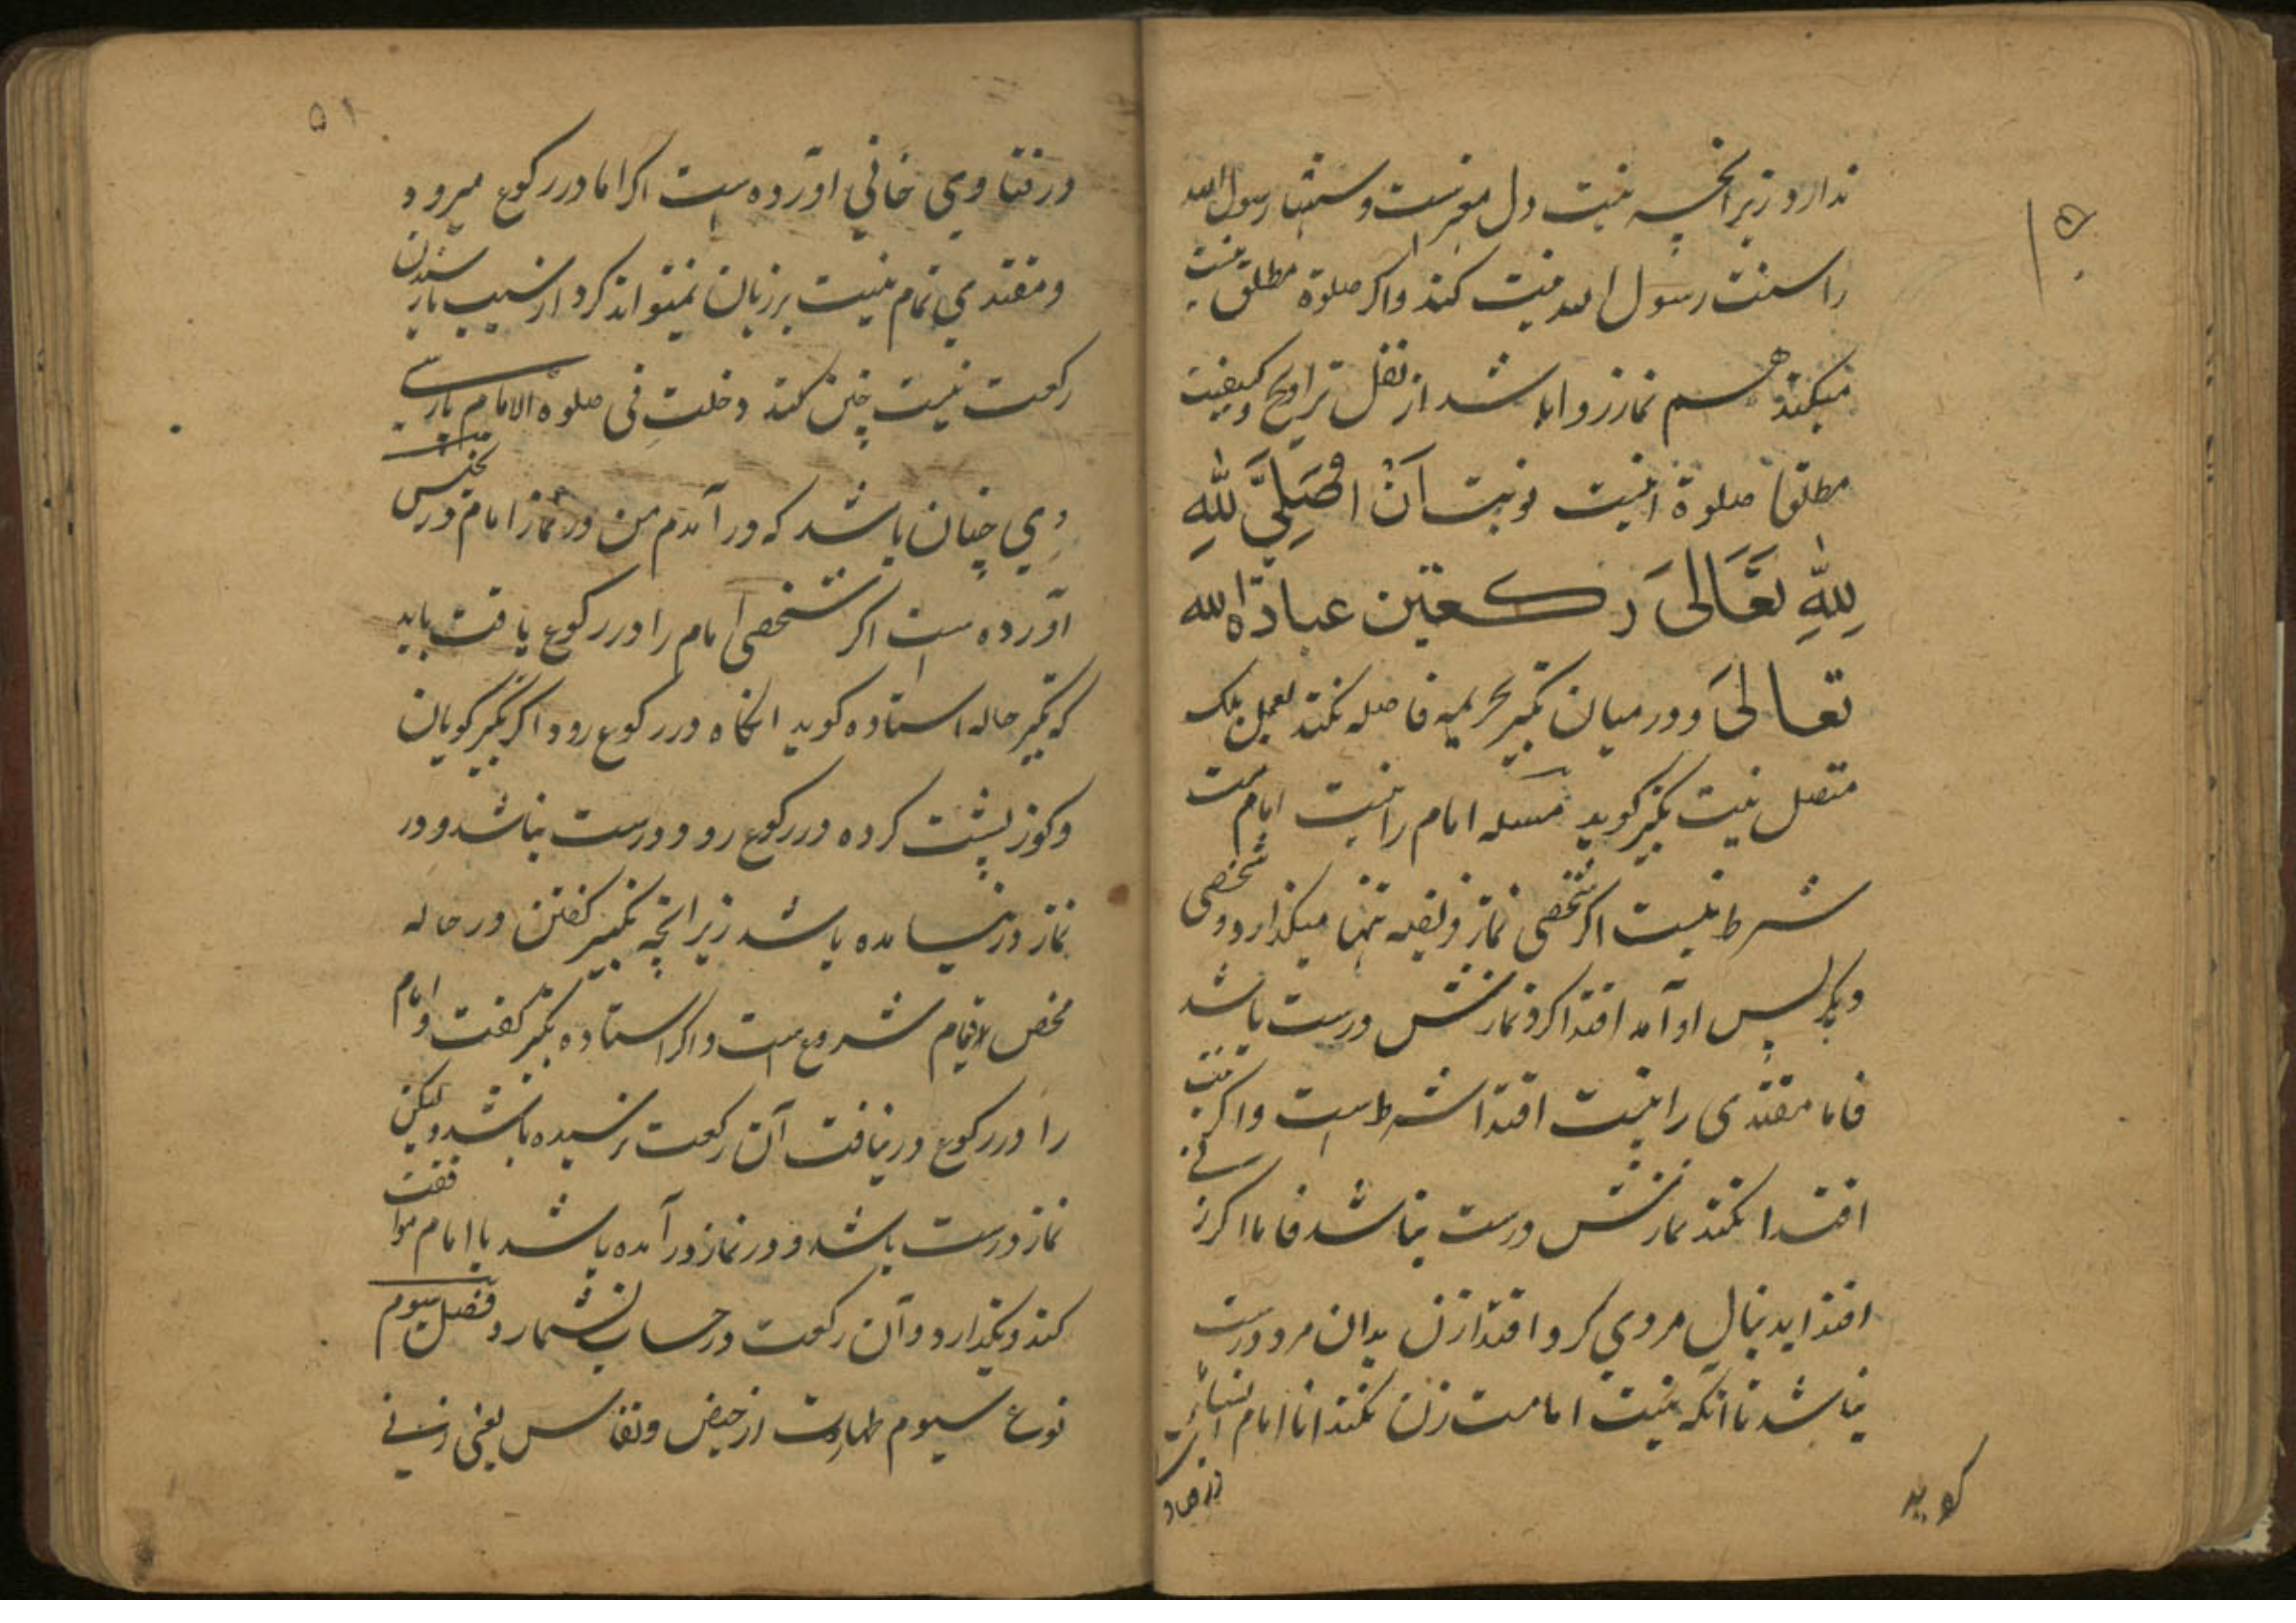 ندارد زیرانچه نیت دل معتبرست و سنتها رسول الله
را سنت رسول الله نیت کند و اکر صلوة مطلق نیت
میکند هم نماز روا باشد از نفل تراویح و کیفیت
مطلقا صلوة اینست نویت آن اصلی لله
لله تعالی رکعتین عبادة الله
تعالی و در میان تکبیر تحریمه فاصله نکند بعمل بلک
متصل نیت تکبیر کوید مسله امام را نیت امامت
شرط نیست اکر شخصی نماز فریضه تنها میکذارد و شخصی
دیکر پس او آمد اقتدا کرد نمازش درست باشد
فاما مقتدی را نیت اقتدا شرط است و اکر نیت
اقتدا نکند نمازش درست نباشد فاما اکر زنی
اقتدا بدنبال مردی کرد اقتدا زن بدان مرد درست
نباشد تا آنکه نیت امامت زن نکند انا امام النساء
کوید
۵۱
در فتاوی خانی آورده است اکر امام در رکوع میرود
و مقتدی تمام نیت بر زبان نمیتواند کرد از سبب نارسیدن
رکعت نیت چنین کند دخلت فی صلوة الامام پارسی
وی چنان باشد که در آمدم من در نماز امام در تجنیس
آورده است اکر شخصی امام را در رکوع یافت باید
که تکبیر حاله استاده کوید انکاه در رکوع رود اکر تکبیر کویان
و کوز پشت کرده در رکوع رود درست نباشد و در
نماز در نیامده باشد زیرانچه تکبیر کفتن در حاله
محض قیام مشروع است و اکر استاده تکبیر کفت و امام
را در رکوع در نیافت آن رکعت نرسیده باشد ولیکن
نماز درست باشد و در نماز در آمده باشد با امام موافقت
کند و بکذارد و آن رکعت در حساب نشمارد فصل سیوم
نوع سیوم طهارت از حیض و نفاس یعنی زنی